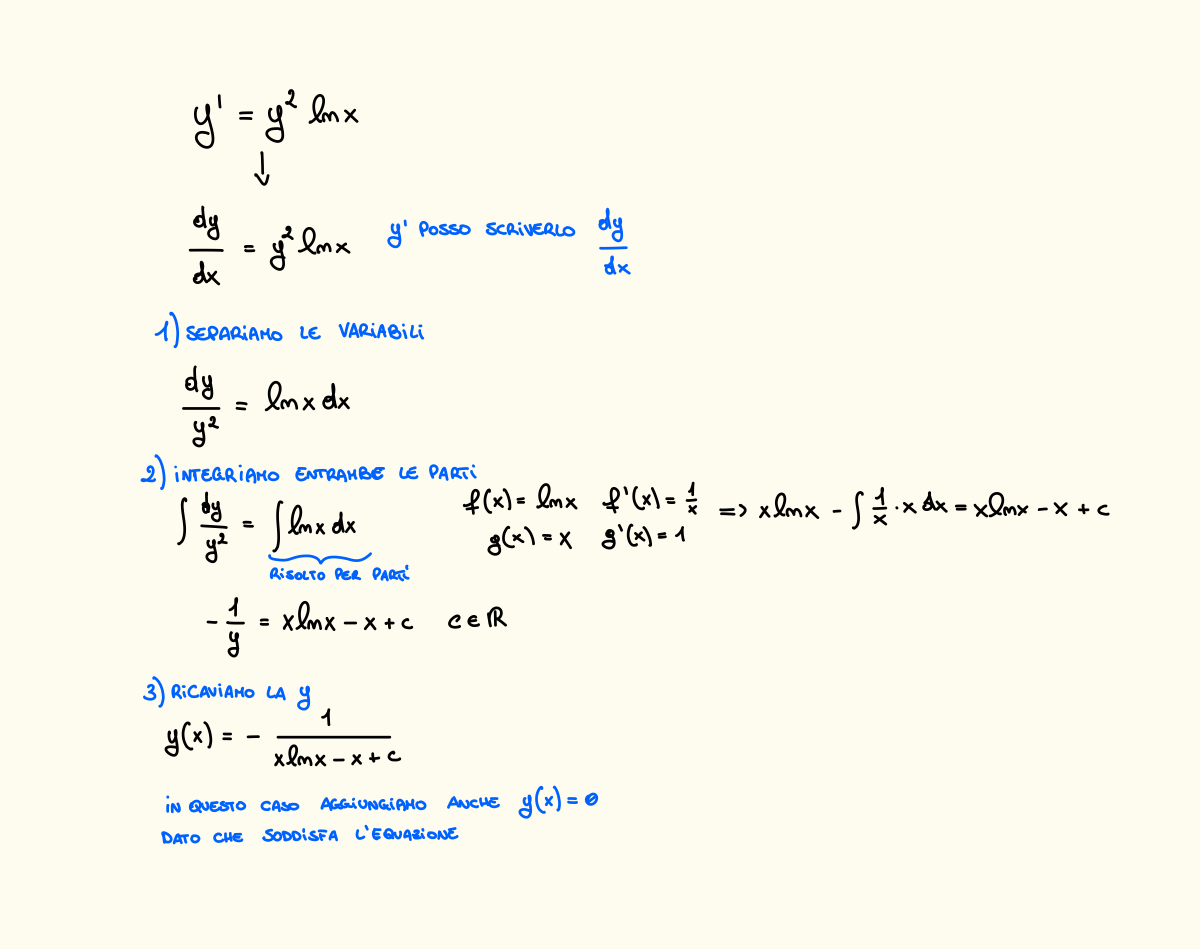 y' = y² ln x
↓
dy/dx = y² ln x y' POSSO SCRIVERLO dy/dx
1) SEPARIAMO LE VARIABILI
dy/y² = ln x dx
2) INTEGRIAMO ENTRAMBE LE PARTI
∫ dy/y² = ∫ ln x dx f(x) = ln x f'(x) = 1/x => x ln x - ∫ 1/x · x dx = x ln x - x + c
g(x) = x g'(x) = 1
RISOLTO PER PARTI
- 1/y = x ln x - x + c c ∈ ℝ
3) RICAVIAMO LA y
y(x) = - 1/(x ln x - x + c)
IN QUESTO CASO AGGIUNGIAMO ANCHE y(x) = 0
DATO CHE SODDISFA L'EQUAZIONE